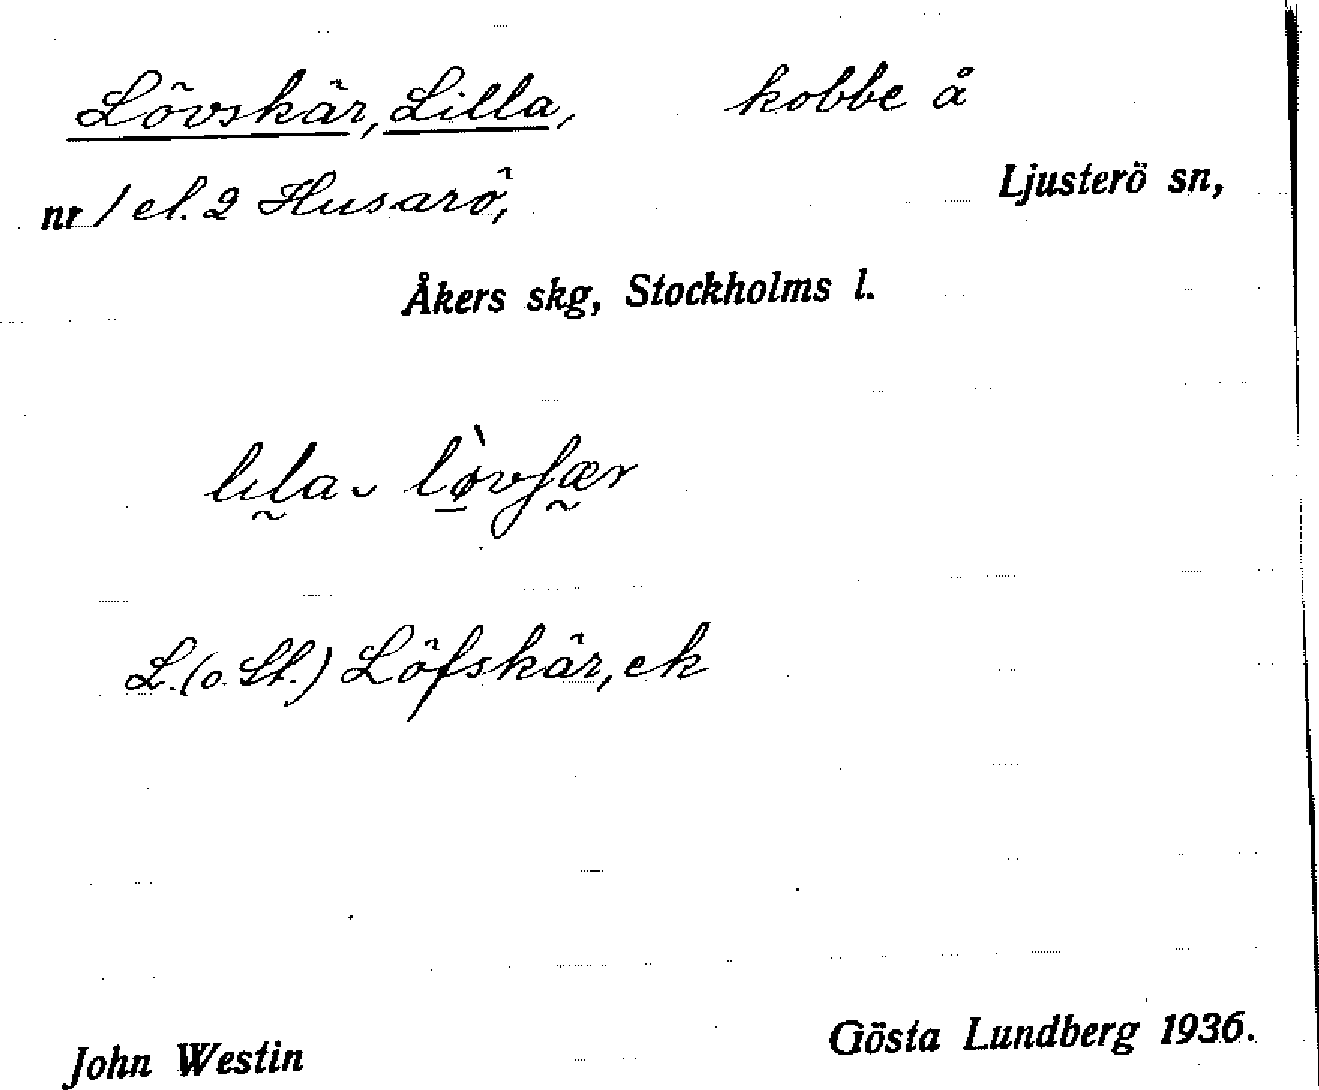 Lövskär, Lilla, kobbe å
nr 1 el. 2 Husarö, Ljusterö sn,
Åkers skg, Stockholms l.
L. (o. St.) Löfskär, ek
John Westin Gösta Lundberg 1936.